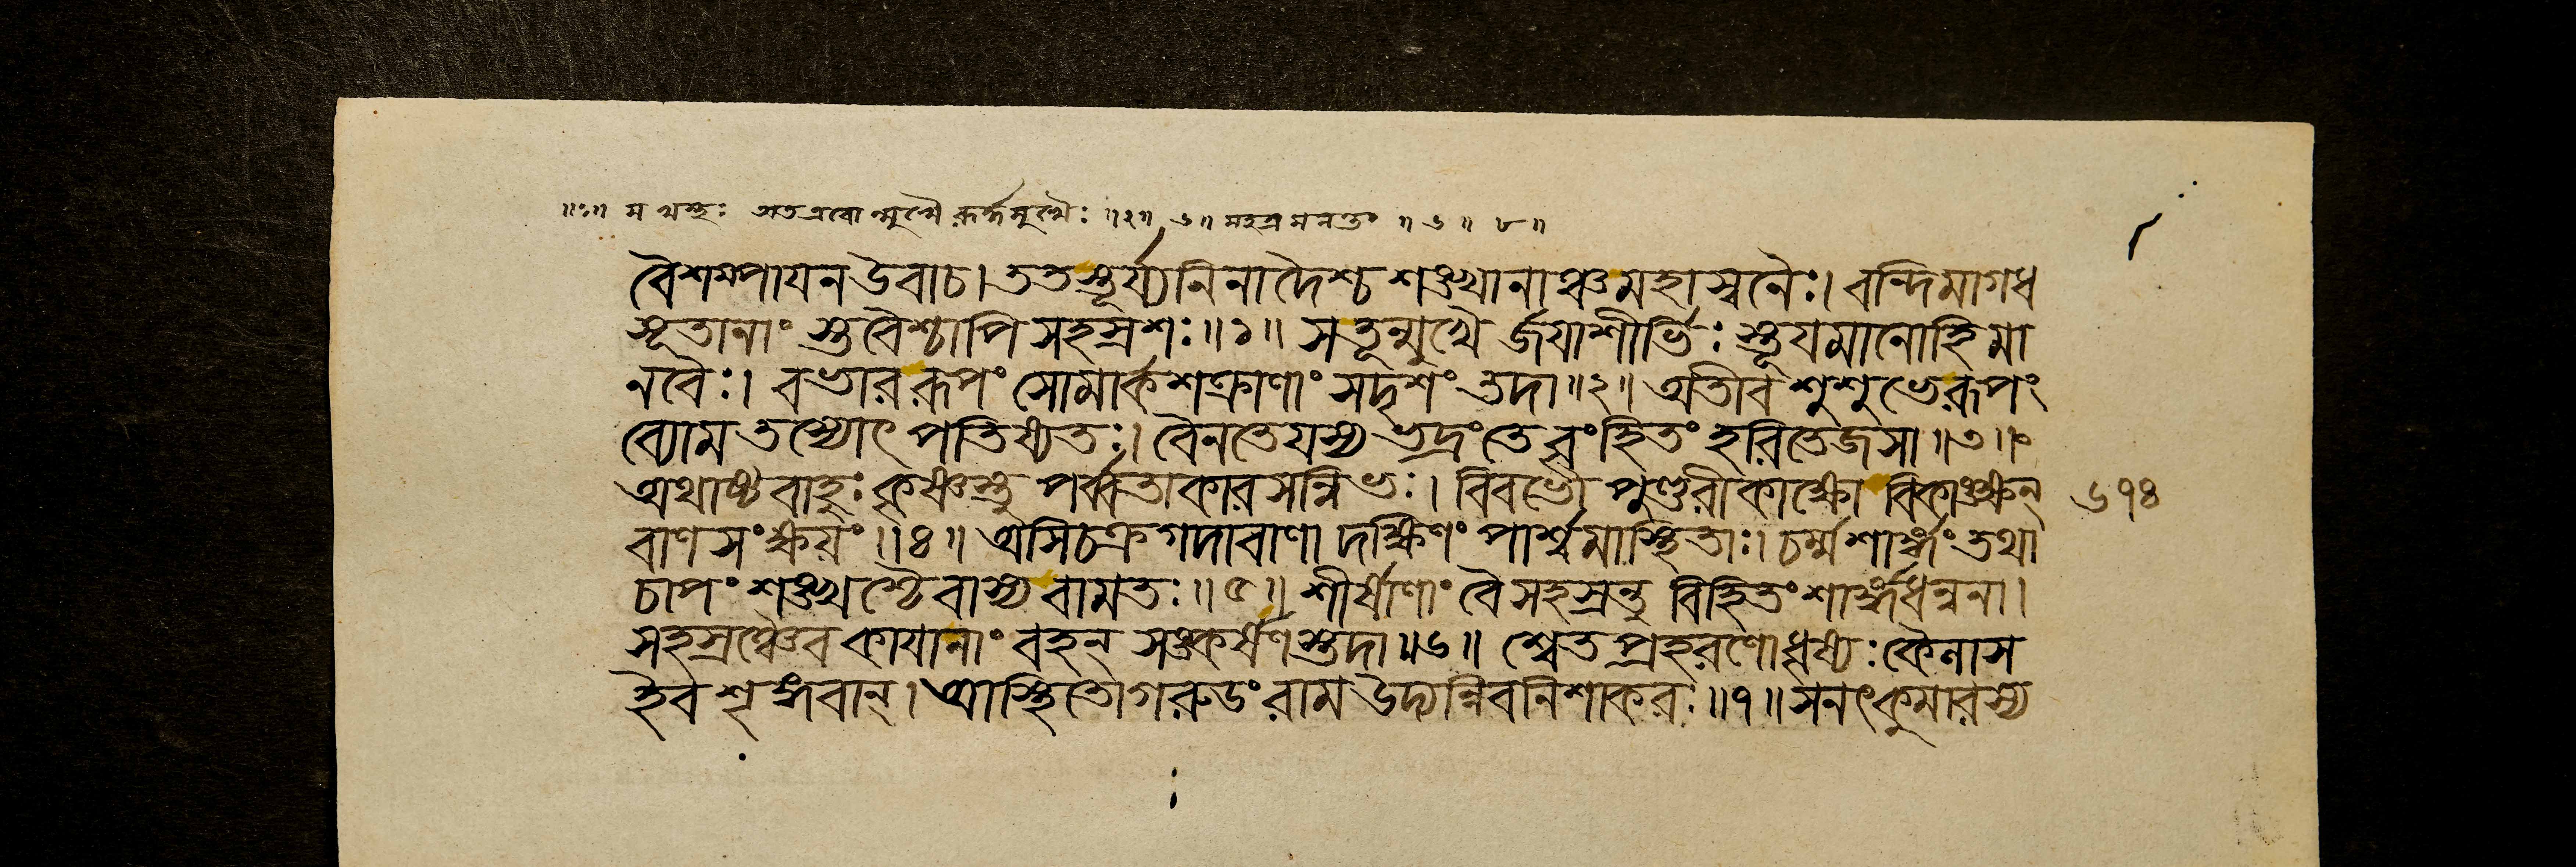 ॥১॥ স খস্থঃ অতএবোন্মুখৈরূর্দ্ধমুখৈঃ ॥২॥ ৬॥ সহস্রমনন্তং ॥ ৬ ॥ ৮ ॥
বৈশম্পায়ন উবাচ। ততস্তূর্য্যনিনাদৈশ্চ শঙ্খানাঞ্চ মহাস্বনৈঃ। বন্দিমাগধ
সূতানাং স্তবৈশ্চাপি সহস্রশঃ॥১॥ স তূন্মুখৈর্জয়াশীর্ভিঃ স্তূয়মানোহি মা
নবৈঃ। বভার রূপং সোমার্কশক্রাণাং সদৃশং তদা॥২॥ অতীব শুশুভে রূপং
ব্যোম তস্যোৎপতিষ্যতঃ। বৈনতেয়স্য ভদ্রং তে বৃংহিতং হরিতেজসা॥৩॥
অথাষ্টবাহুঃ কৃষ্ণস্তু পর্ব্বতাকারসন্নিভঃ। বিবভৌ পুণ্ডরীকাক্ষো বিকাঙ্ক্ষন্ ৬৭৪
বাণসংক্ষয়ং॥৪॥ অসিচক্রগদাবাণা দক্ষিণং পার্শ্বমাস্থিতাঃ। চর্ম্ম শার্ঙ্গং তথা
চাপং শঙ্খশ্চৈবাস্য বামতঃ॥৫॥ শীর্ষাণাং বৈ সহস্রন্তু বিহিতং শার্ঙ্গধন্বনা।
সহস্রঞ্চৈব কায়ানাং বহন্ সঙ্কর্ষণস্তদা॥৬॥ শ্বেতপ্রহরণোধৃষ্যঃ কৈলাস
ইব শৃঙ্গবান্। আস্থিতো গরুডং রাম উদ্যন্নিব নিশাকরঃ॥৭॥ সনৎকুমারস্য